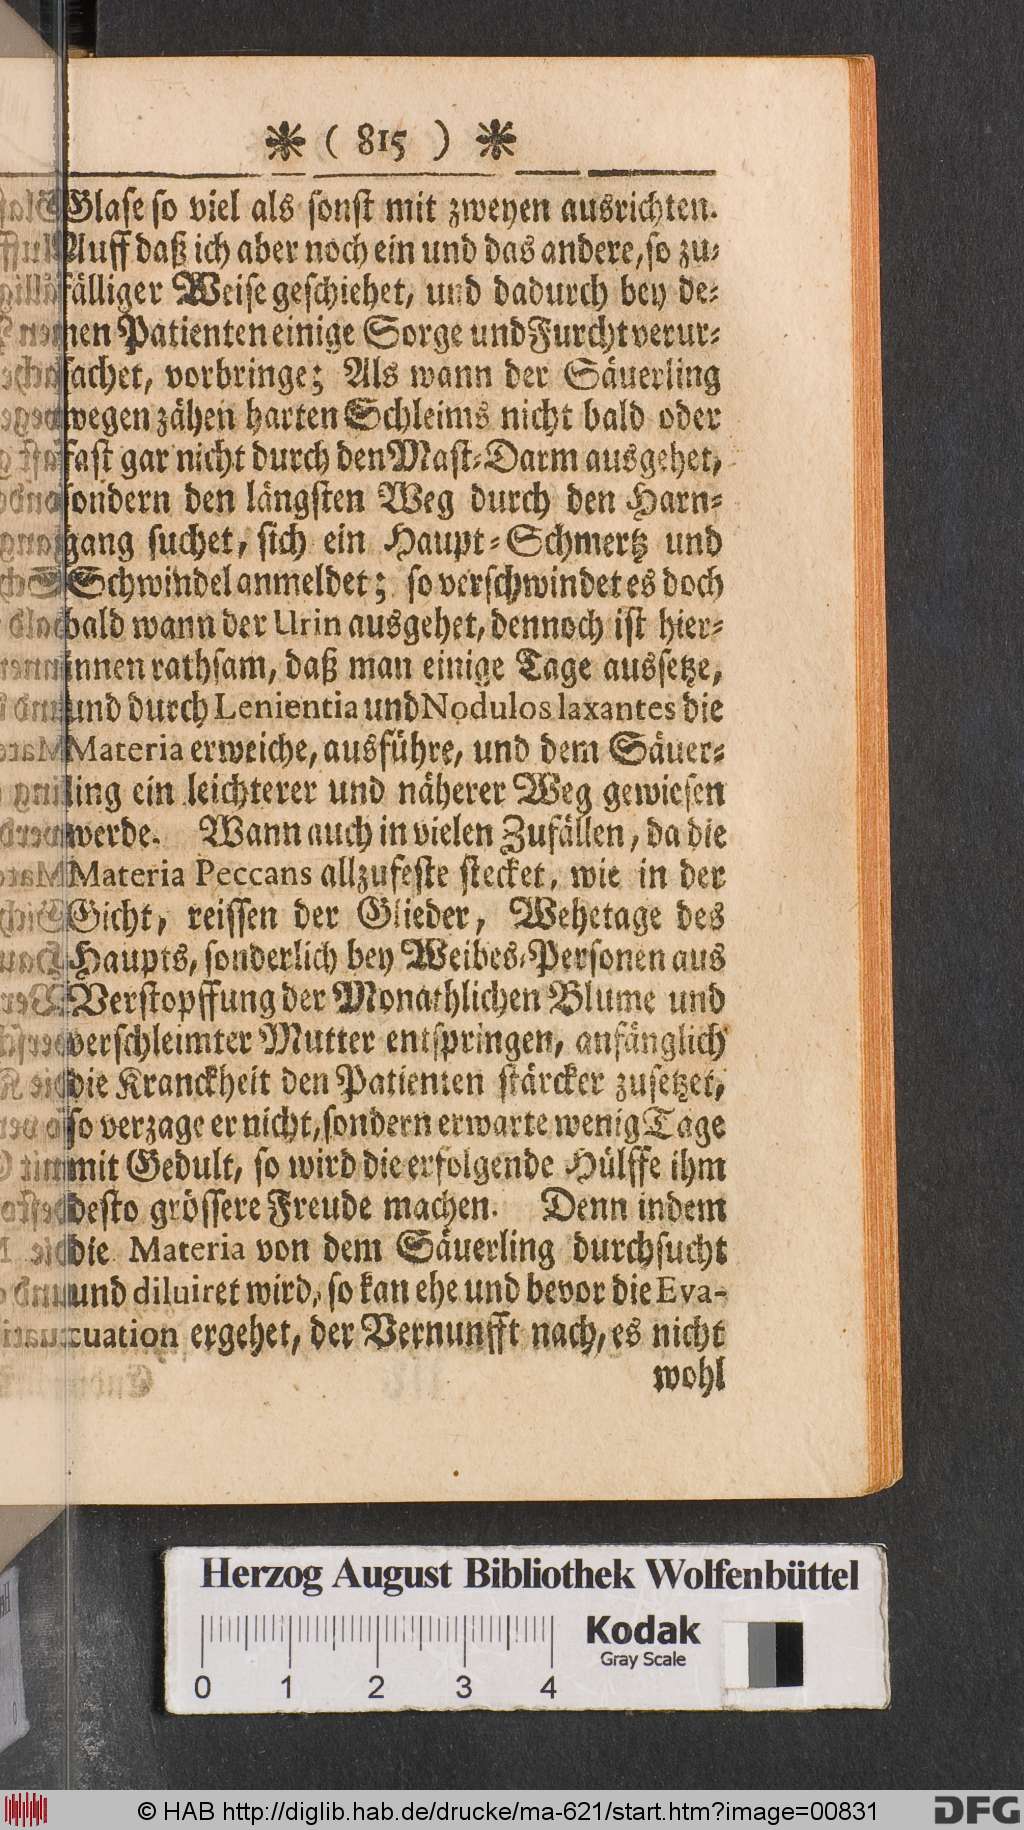 ❋ ( 815 ) ❋
Glase so viel als sonst mit zweyen ausrichten.
Auff daß ich aber noch ein und das andere, so zu-
fälliger Weise geschiehet, und dadurch bey de-
nen Patienten einige Sorge und Furcht verur-
sachet, vorbringe; Als wann der Säuerling
wegen zähen harten Schleims nicht bald oder
fast gar nicht durch den Mast-Darm ausgehet,
sondern den längsten Weg durch den Harn-
gang suchet, sich ein Haupt-Schmertz und
Schwindel anmeldet; so verschwindet es doch
bald wann der Urin ausgehet, dennoch ist hier-
innen rathsam, daß man einige Tage aussetze,
und durch Lenientia und Nodulos laxantes die
Materia erweiche, ausführe, und dem Säuer-
ling ein leichterer und näherer Weg gewiesen
werde. Wann auch in vielen Zufällen, da die
Materia Peccans allzufeste stecket, wie in der
Gicht, reissen der Glieder, Wehetage des
Haupts, sonderlich bey Weibes-Personen aus
Verstopffung der Monathlichen Blume und
verschleimter Mutter entspringen, anfänglich
die Kranckheit den Patienten stärcker zusetzet,
so verzage er nicht, sondern erwarte wenig Tage
mit Gedult, so wird die erfolgende Hülffe ihm
desto grössere Freude machen. Denn indem
die Materia von dem Säuerling durchsucht
und diluiret wird, so kan ehe und bevor die Eva-
cuation ergehet, der Vernunfft nach, es nicht
wohl
Herzog August Bibliothek Wolfenbüttel
Kodak
Gray Scale
0 1 2 3 4
© HAB http://diglib.hab.de/drucke/ma-621/start.htm?image=00831
DFG